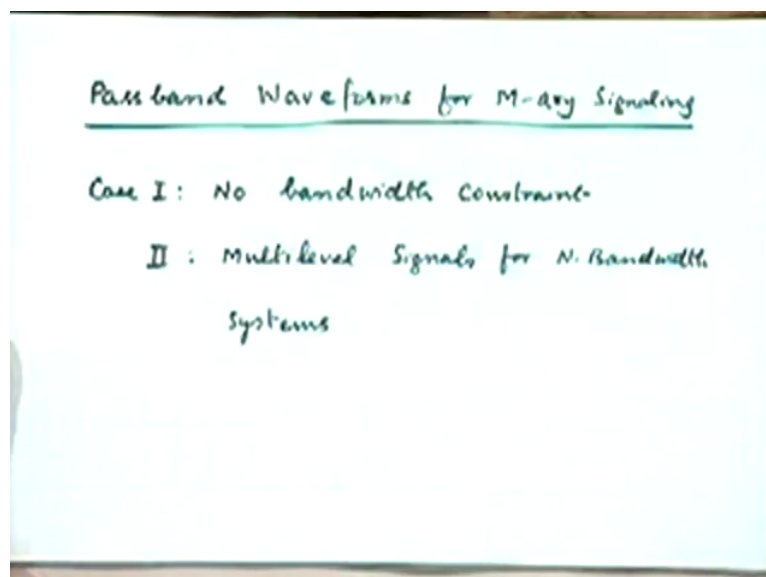 Passband Waveforms for M-ary Signaling
Case I : No bandwidth Constraint
II : Multilevel Signals for N. Bandwidth
Systems